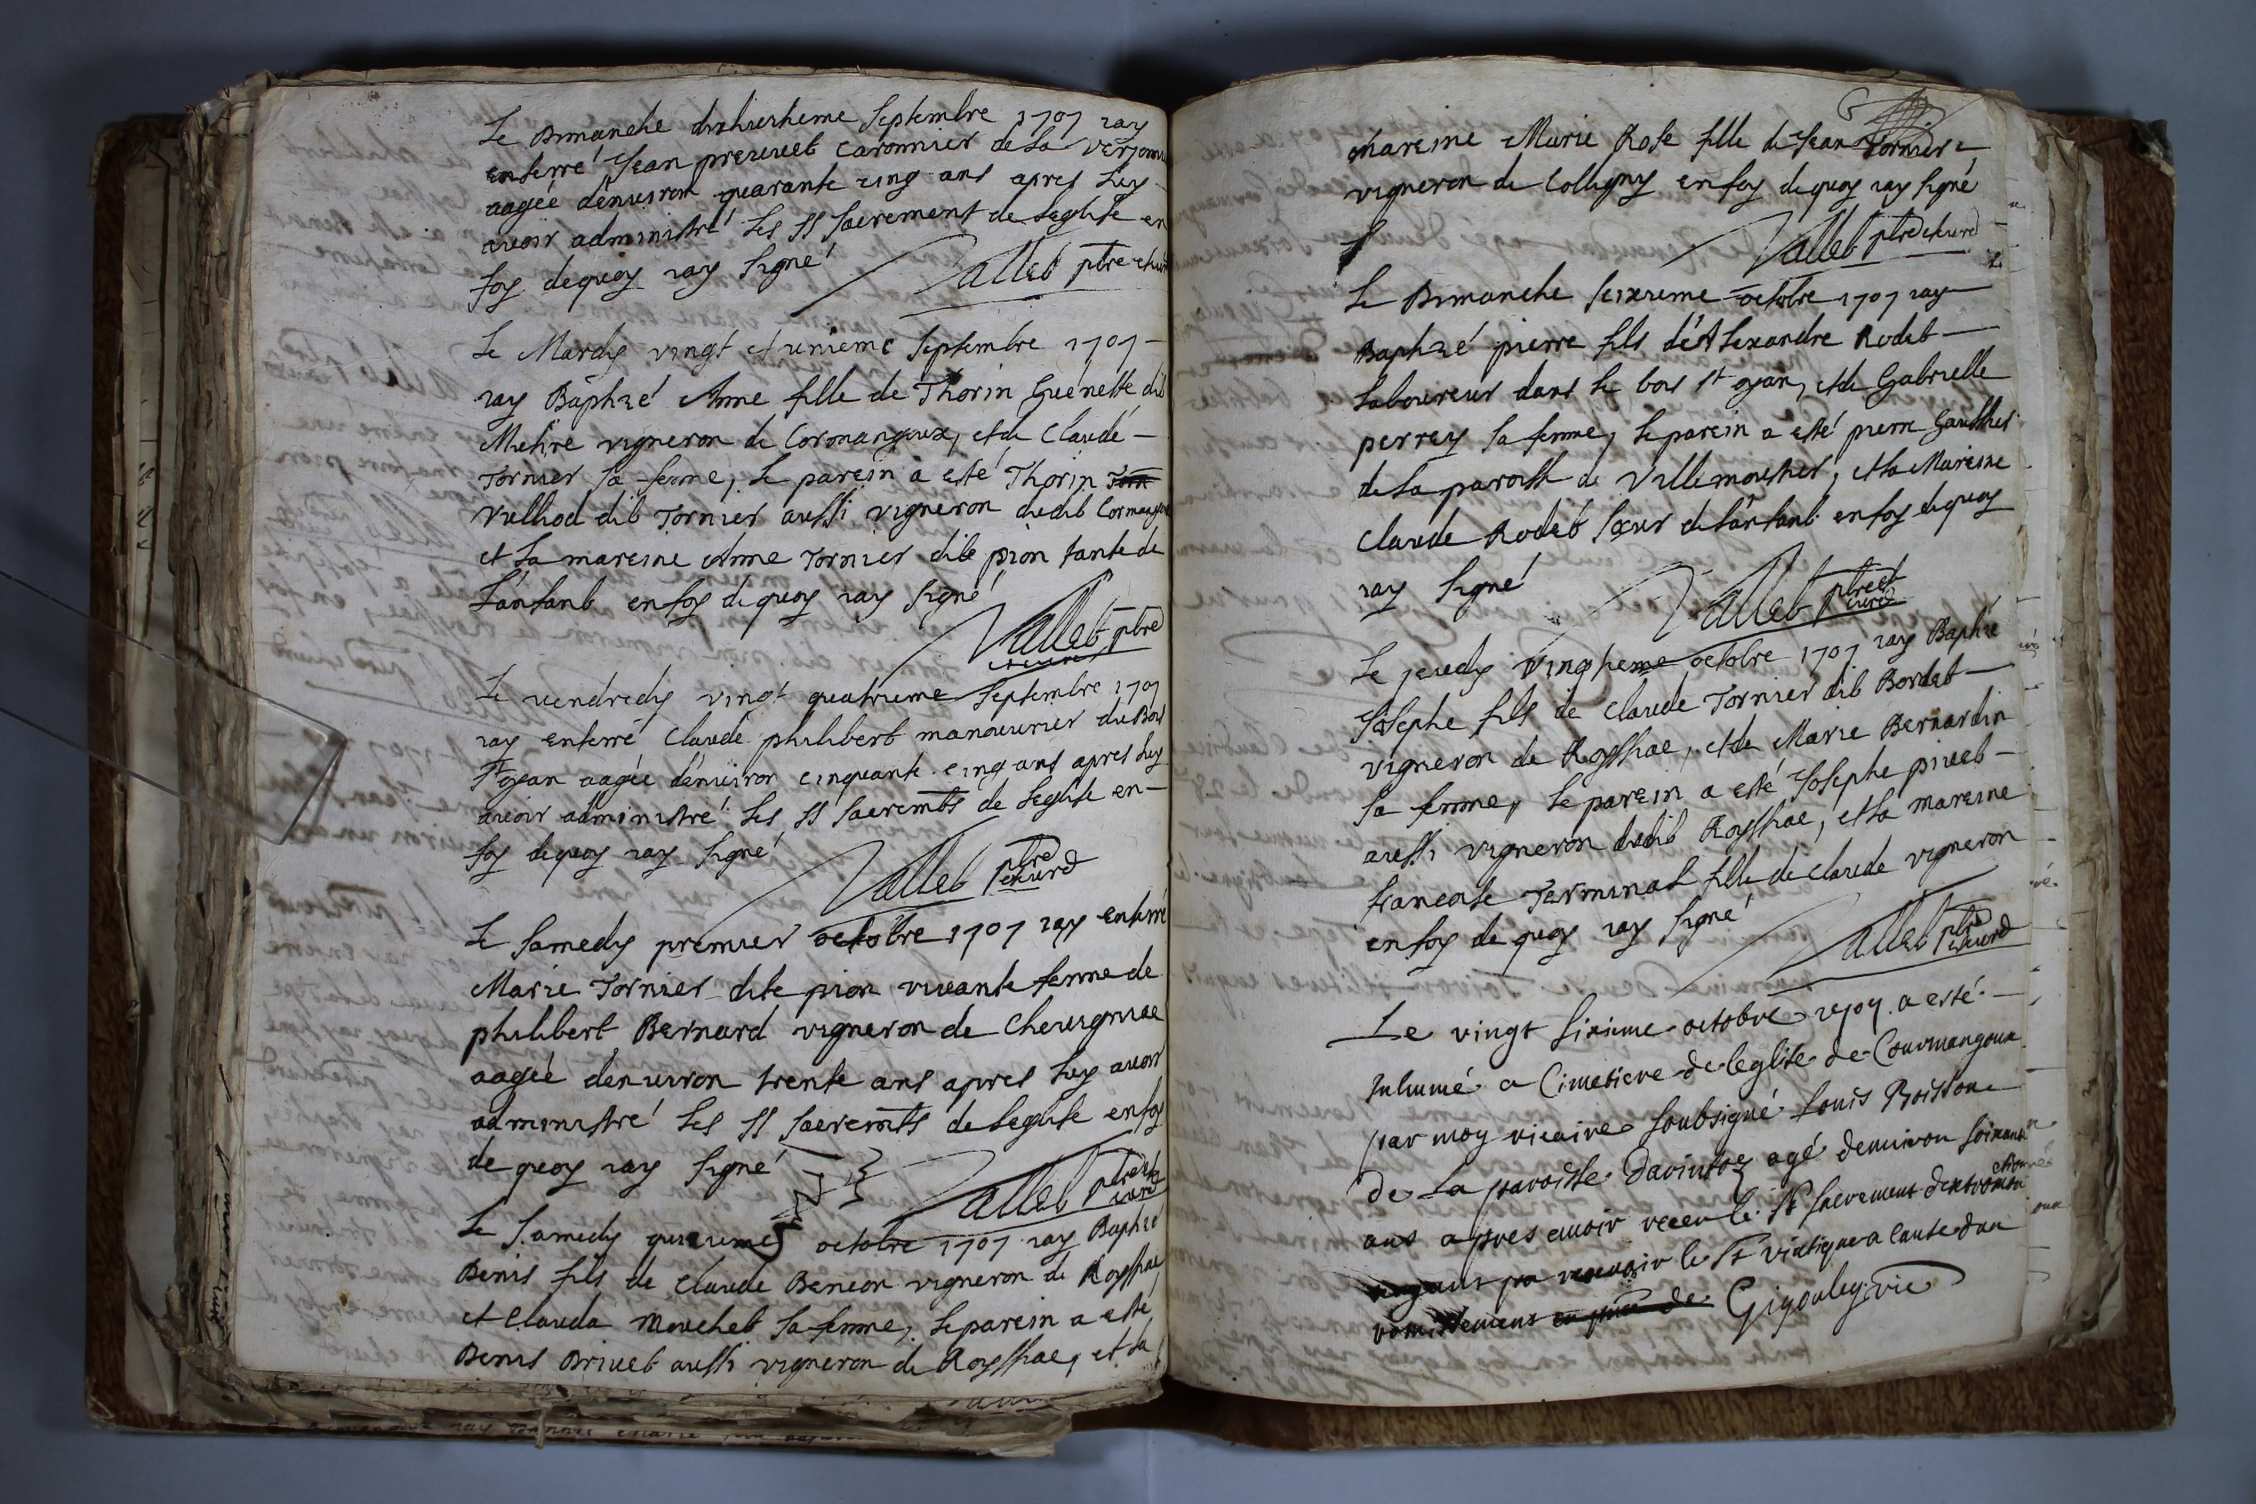 Le Dimanche dixhuictieme Septembre 1707 iay
enterré Jean preuuet caronnier de la verjonn
aagée dénuiron quarante cinq ans apres luy
auoir administré les SS sacrement de leglise en
foy dequoy iay signé Vallet ptre & curé
Le Mardy vingt et unieme Septembre 1707
iay Baptizé Anne fille de Thorin Guenette dit
vigneron de Cormangoux, et de Claude
Tornier sa femme, le parein a esté Thorin
Vulliod dit Tornier aussi vigneron dudit Cormangoux
et la mareine Anne Tornier dite pion tante de
l'anfant en foy de quoy iay signé
Vallet ptre
& curé
Le vendredy vingt quatrieme Septembre 1707
iay enterré Claude philibert manouurier du Bois
St oyan aagée dénuiron cinquante cinq ans apres luy
auoir administré les SS sacremts de leglise en
foy de quoy iay signé
Vallet ptre
& curé
Le Samedy premier octobre 1707 iay enterré
Marie Tornier dite pion viuante femme de
philibert Bernard vigneron de Cheuigniae
aagée denuiron trente ans apres luy auoir
administré les SS sacremts de leglise en foy
de quoy iay signé
Vallet ptre &
curé
Le Samedy quinzieme octobre 1707 iay Baptizé
Denis fils de Claude Beneon vigneron de Roissiae
et Clauda Mouchet sa femme, le parein a esté
Denis Briuet aussi vigneron de Roissiae, et la
mareine Marie Rose fille de Jean Tornier
vigneron de Colligny en foy de quoy iay signé
Vallet ptre & curé
Le Dimanche seizieme octobre 1707 iay
Baptizé pierre fils d'Alexandre Rodet
laboureur dans le bois st oyan, et de Gabrielle
perrey sa femme, le parein a esté pierre Gauthier
de la paroisse de Villemoustier, et la Mareine
Claude Rodet soeur de l'anfant en foy de quoy
iay signé
Vallet ptre et
curé
Le jeudy vingtieme octobre 1707 iay Baptizé
Josephe fils de Claude Tornier dit Bordet
vigneron de Roissiae, et de Marie Bernardin
sa femme, le parein a esté Josephe piuet
aussi vigneron dudit Roissiae, et la mareine
francoise Terminat fille de Claude vigneron
en foy de quoy iay signé
Vallet ptre
& curé
Le vingt sixieme octobre 1707 a esté
Inhumé a Cimetiere de leglise de Courmangoux
par moy vicaire soubsigné Louis Poisson
de la paroisse agé denuiron soixante
ans apres auoir receu le St sacrement dextremonction
nayant pu receuoir le St viatique a cause dun
vomissement Gigouley vic